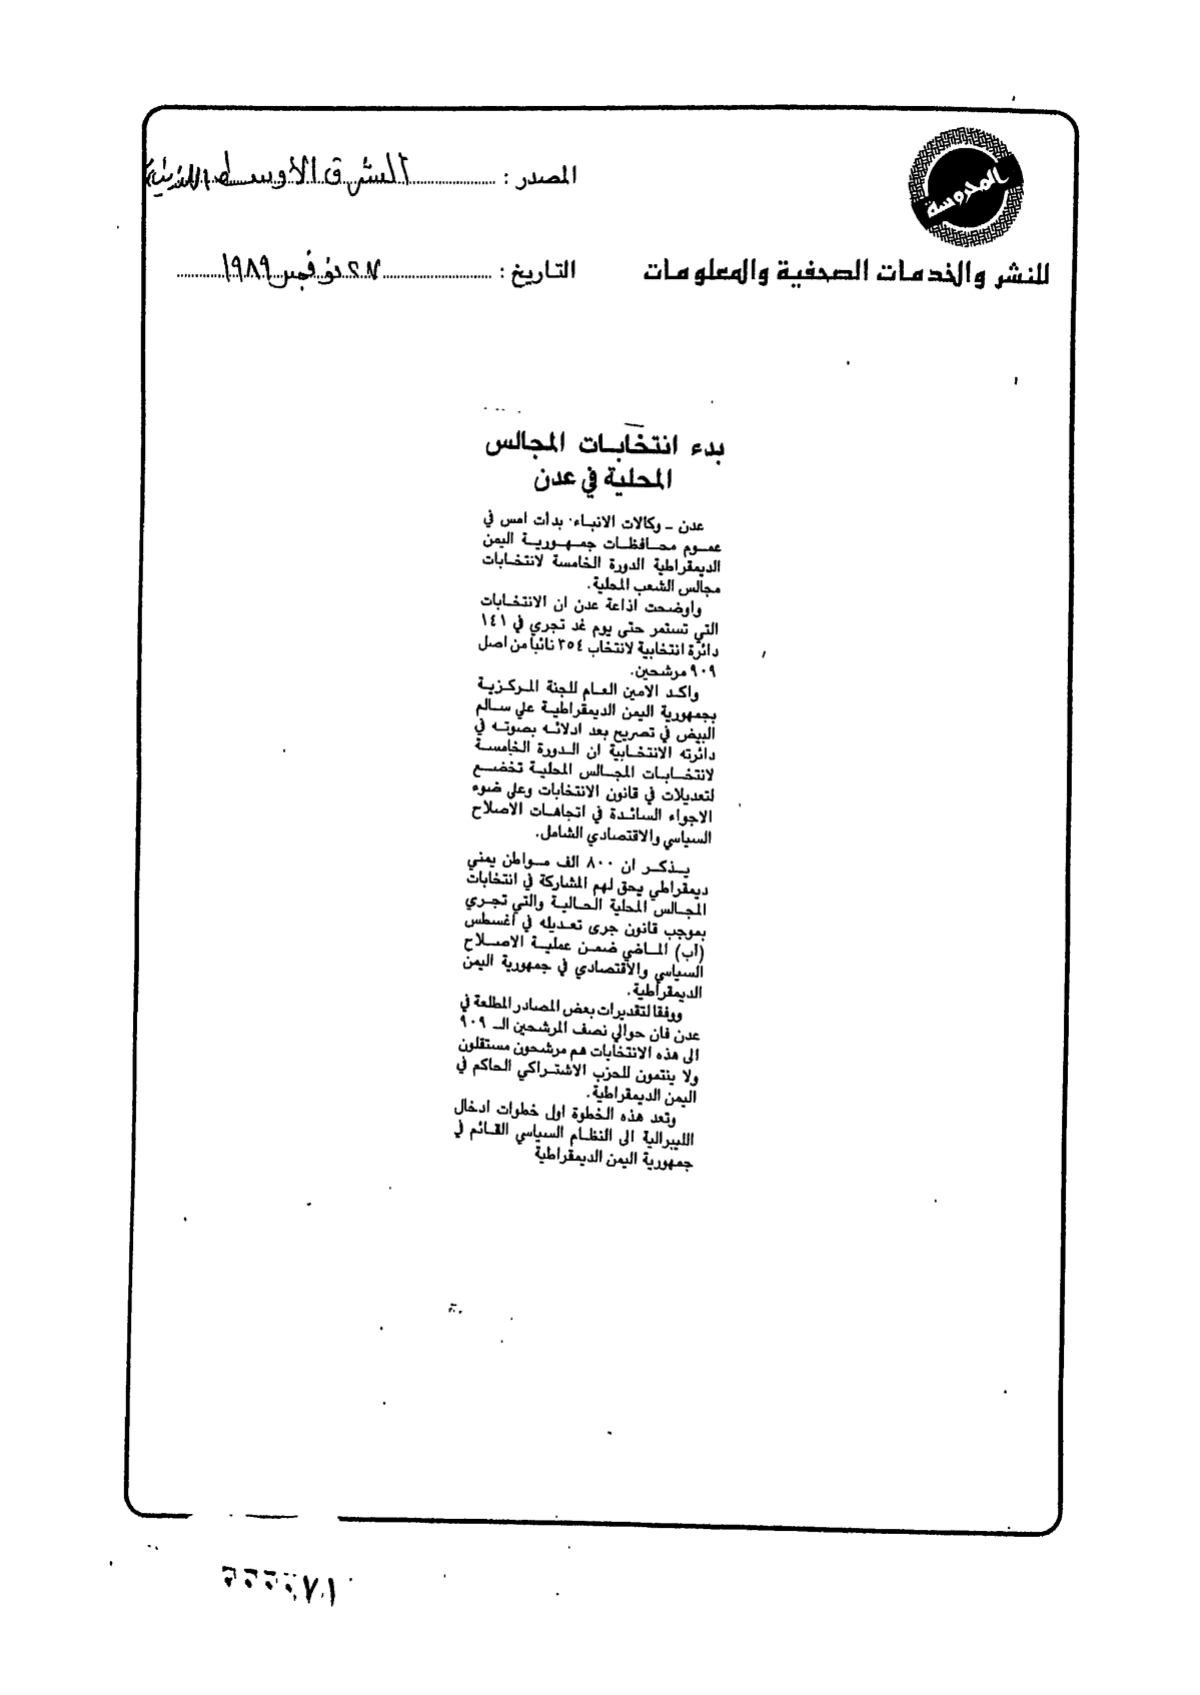 المحروسة
للنشر والخدمات الصحفية والمعلومات
المصدر : الشرق الأوسط اللندنية
التاريخ : ٢٧ نوفمبر ١٩٨٩
بدء انتخابات المجالس
المحلية في عدن
عدن ـ وكالات الانباء: بدأت امس في
عموم محافظات جمهورية اليمن
الديمقراطية الدورة الخامسة لانتخابات
مجالس الشعب المحلية.
واوضحت اذاعة عدن ان الانتخابات
التي تستمر حتى يوم غد تجري في ١٤١
دائرة انتخابية لانتخاب ٣٥٤ نائبا من اصل
٩٠٩ مرشحين.
واكد الامين العام للجنة المركزية
بجمهورية اليمن الديمقراطية علي سالم
البيض في تصريح بعد ادلائه بصوته في
دائرته الانتخابية ان الدورة الخامسة
لانتخابات المجالس المحلية تخضع
لتعديلات في قانون الانتخابات وعلى ضوء
الاجواء السائدة في اتجاهات الاصلاح
السياسي والاقتصادي الشامل.
يذكر ان ٨٠٠ الف مواطن يمني
ديمقراطي يحق لهم المشاركة في انتخابات
المجالس المحلية الحالية والتي تجري
بموجب قانون جرى تعديله في أغسطس
(آب) الماضي ضمن عملية الاصلاح
السياسي والاقتصادي في جمهورية اليمن
الديمقراطية.
ووفقا لتقديرات بعض المصادر المطلعة في
عدن فان حوالي نصف المرشحين الـ ٩٠٩
الى هذه الانتخابات هم مرشحون مستقلون
ولا ينتمون للحزب الاشتراكي الحاكم في
اليمن الديمقراطية.
وتعد هذه الخطوة اول خطوات ادخال
الليبرالية الى النظام السياسي القائم في
جمهورية اليمن الديمقراطية